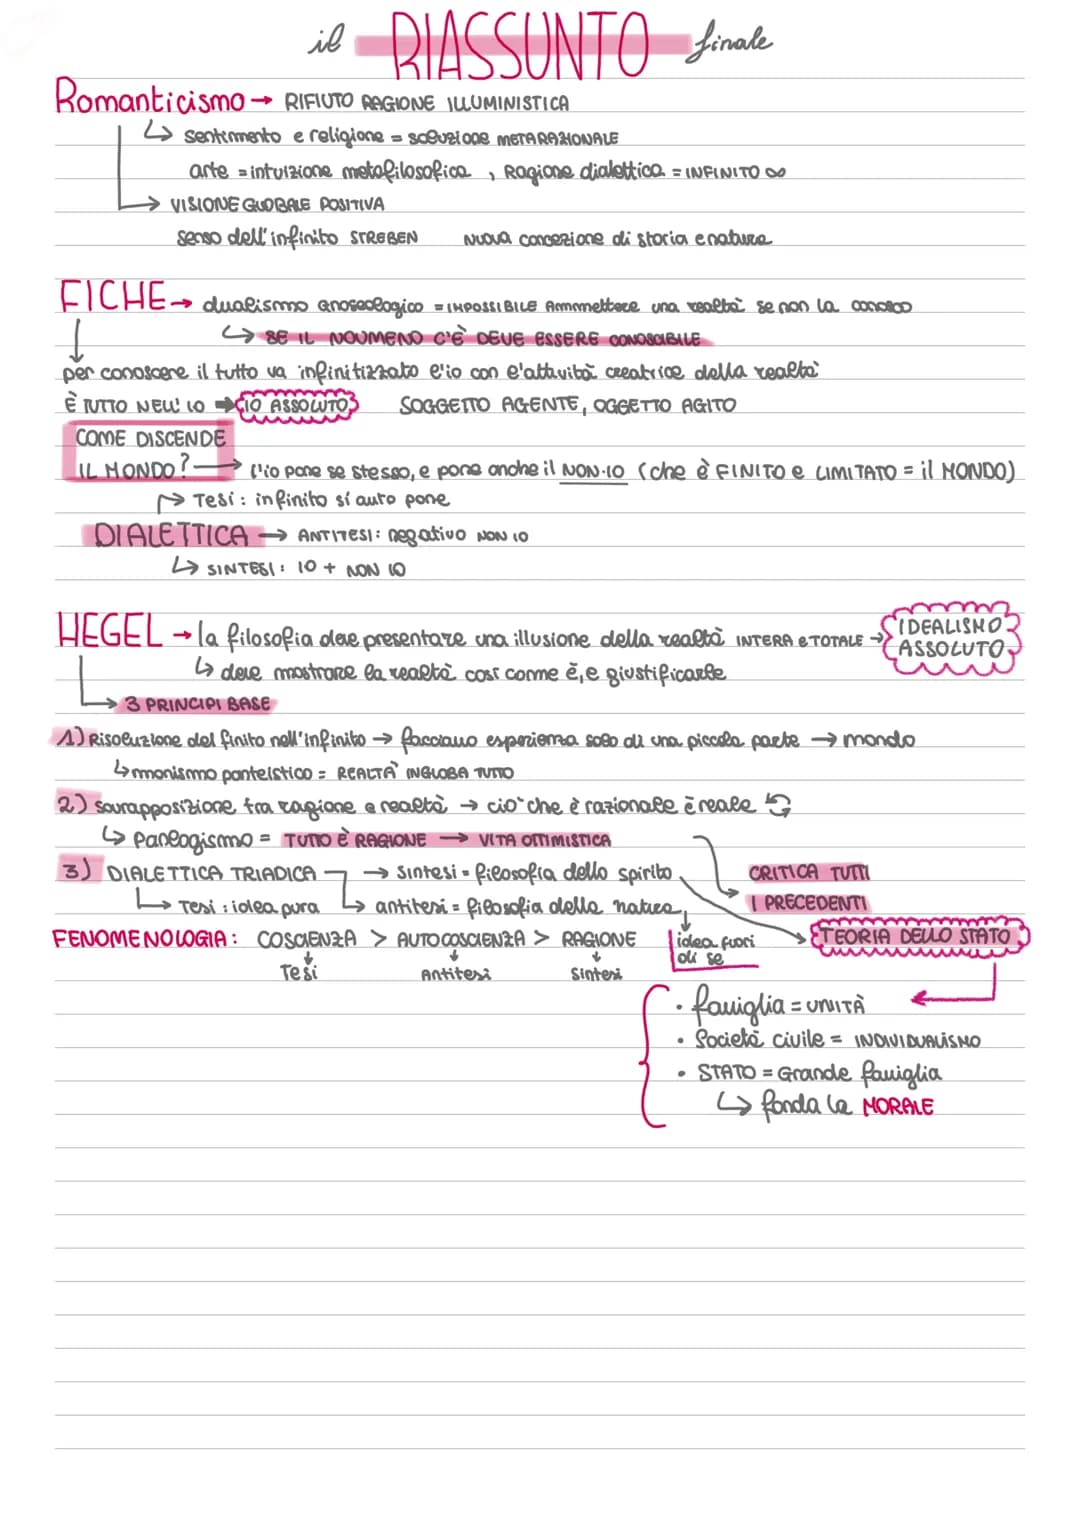 il RIASSUNTO finale
Romanticismo → RIFIUTO RAGIONE ILLUMINISTICA
↳ sentimento e religione = soluzione METARAZIONALE
arte = intuizione metafilosofica , Ragione dialettica = INFINITO ∞
→ VISIONE GLOBALE POSITIVA
senso dell'infinito STREBEN NUOVA concezione di storia e natura
FICHE → dualismo gnoseologico = IMPOSSIBILE Ammmettere una realtà se non la conosco
↳ SE IL NOUMENO C'È DEVE ESSERE CONOSCIBILE
per conoscere il tutto va infinitizzato l'io con l'attività creatrice della realtà
È TUTTO NELL' IO → IO ASSOLUTO SOGGETTO AGENTE, OGGETTO AGITO
COME DISCENDE
IL MONDO? → l'io pone se stesso, e pone anche il NON-IO (che è FINITO e LIMITATO = il MONDO)
→ Tesi: infinito si auto pone
DIALETTICA → ANTITESI: negativo NON IO
↳ SINTESI: IO + NON IO
HEGEL → la filosofia deve presentare una illusione della realtà INTERA e TOTALE → IDEALISMO ASSOLUTO
↳ deve mostrare la realtà così come è, e giustificarla
→ 3 PRINCIPI BASE
1) Risoluzione del finito nell'infinito → facciamo esperienza solo di una piccola parte → mondo
↳ monismo panteistico = REALTÀ INGLOBA TUTTO
2) sovrapposizione tra ragione e realtà → cio' che è razionale è reale
↳ Panlogismo = TUTTO È RAGIONE → VITA OTTIMISTICA
3) DIALETTICA TRIADICA → sintesi = filosofia dello spirito CRITICA TUTTI
↳ Tesi: idea pura ↳ antitesi = filosofia della natura I PRECEDENTI
FENOMENOLOGIA: COSCIENZA > AUTOCOSCIENZA > RAGIONE idea fuori TEORIA DELLO STATO
di se
Tesi Antitesi Sintesi
• famiglia = UNITÀ
• Società civile = INDIVIDUALISMO
• STATO = Grande famiglia
↳ fonda la MORALE